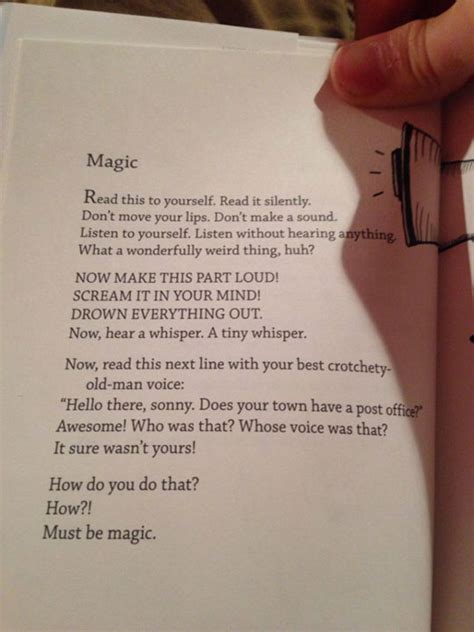 Magic
Read this to yourself. Read it silently.
Don't move your lips. Don't make a sound.
Listen to yourself. Listen without hearing anything.
What a wonderfully weird thing, huh?
NOW MAKE THIS PART LOUD!
SCREAM IT IN YOUR MIND!
DROWN EVERYTHING OUT.
Now, hear a whisper. A tiny whisper.
Now, read this next line with your best crotchety-
old-man voice:
“Hello there, sonny. Does your town have a post office?”
Awesome! Who was that? Whose voice was that?
It sure wasn't yours!
How do you do that?
How?!
Must be magic.